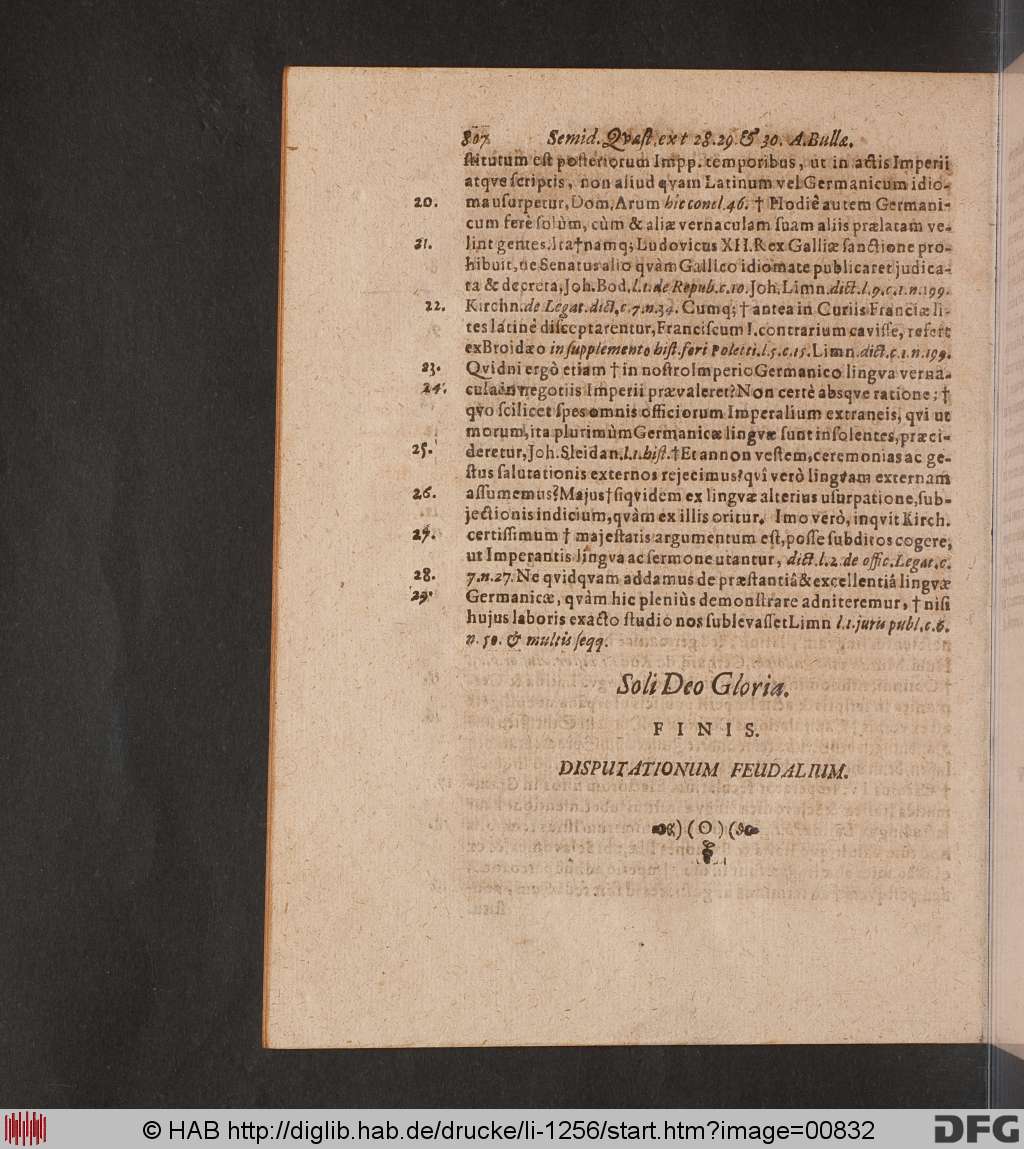 807. Semid. Qvæst. ext 28. 29. & 30. A. Bullæ.
stitutum est posteriorum Impp. temporibus, ut in actis Imperii
atqve scriptis, non aliud qvam Latinum vel Germanicum idio-
20. ma usurpetur, Dom, Arum hic concl. 46. † Hodiê autem Germani-
cum ferè solùm, cùm & aliæ vernaculam suam aliis prælatam ve-
21. lint gentes. Ita † namq; Ludovicus XII. Rex Galliæ sanctione pro-
hibuit, ne Senatus alio qvàm Gallico idiomate publicaret judica-
ta & decreta, Joh. Bod, l. 1. de Repub. c. 10. Joh. Limn. dict. l. 9. c. 1. n. 199.
22. Kirchn. de Legat. dict. c. 7. n. 34. Cumq; † antea in Curiis Franciæ li-
tes latinê disceptarentur, Franciscum I. contrarium cavisse, refert
ex Broidæo in supplemento hist. fori Poletti. l. 5. c. 15. Limn. dict. c. 1. n. 199.
23. Qvidni ergò etiam † in nostro Imperio Germanico lingva verna-
24. cula in negotiis Imperii prævaleret? Non certè absqve ratione; †
qvo scilicet spes omnis officiorum Imperalium extraneis, qvi ut
morum, ita plurimùm Germanicæ lingvæ sunt insolentes, præci-
25. deretur, Joh. Sleidan. l. 1. hist. † Et annon vestem, ceremonias ac ge-
stus salutationis externos rejecimus? qvî verò lingvam externam
26. assumemus? Majus † siqvidem ex lingvæ alterius usurpatione, sub-
jectionis indicium, qvàm ex illis oritur. Imo verò, inqvit Kirch.
27. certissimum † majestatis argumentum est, posse subditos cogere,
ut Imperantis lingva ac sermone utantur, dict. l. 2. de offic. Legat. c.
28. 7. n. 27. Ne qvidqvam addamus de præstantiâ & excellentiâ lingvæ
29. Germanicæ, qvàm hic pleniùs demonstrare adniteremur, † nisi
hujus laboris exacto studio nos sublevasset Limn l. 1. juris publ. c. 6.
n. 50. & multis seqq.
Soli Deo Gloria.
FINIS.
DISPUTATIONUM FEUDALIUM.
© HAB http://diglib.hab.de/drucke/li-1256/start.htm?image=00832
DFG